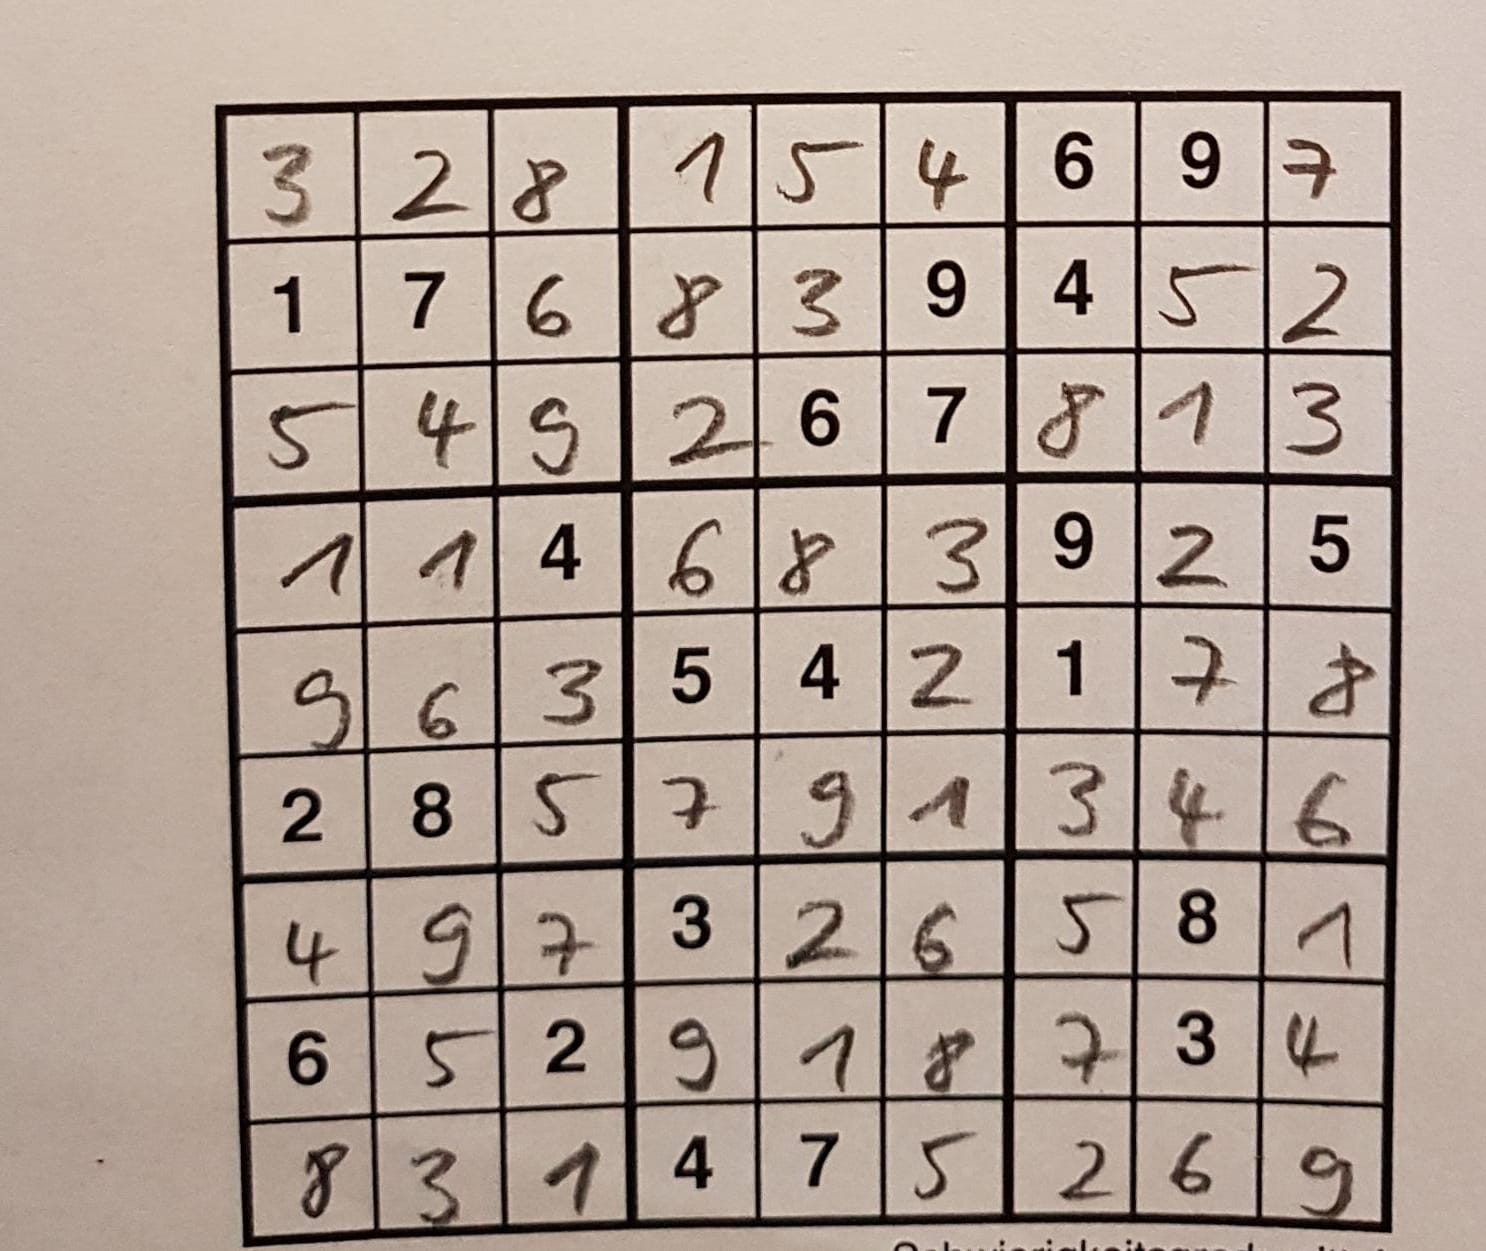 3 2 8 1 5 4 6 9 7
1 7 6 8 3 9 4 5 2
5 4 9 2 6 7 8 1 3
1 1 4 6 8 3 9 2 5
9 6 3 5 4 2 1 7 8
2 8 5 7 9 1 3 4 6
4 9 7 3 2 6 5 8 1
6 5 2 9 1 8 7 3 4
8 3 1 4 7 5 2 6 9